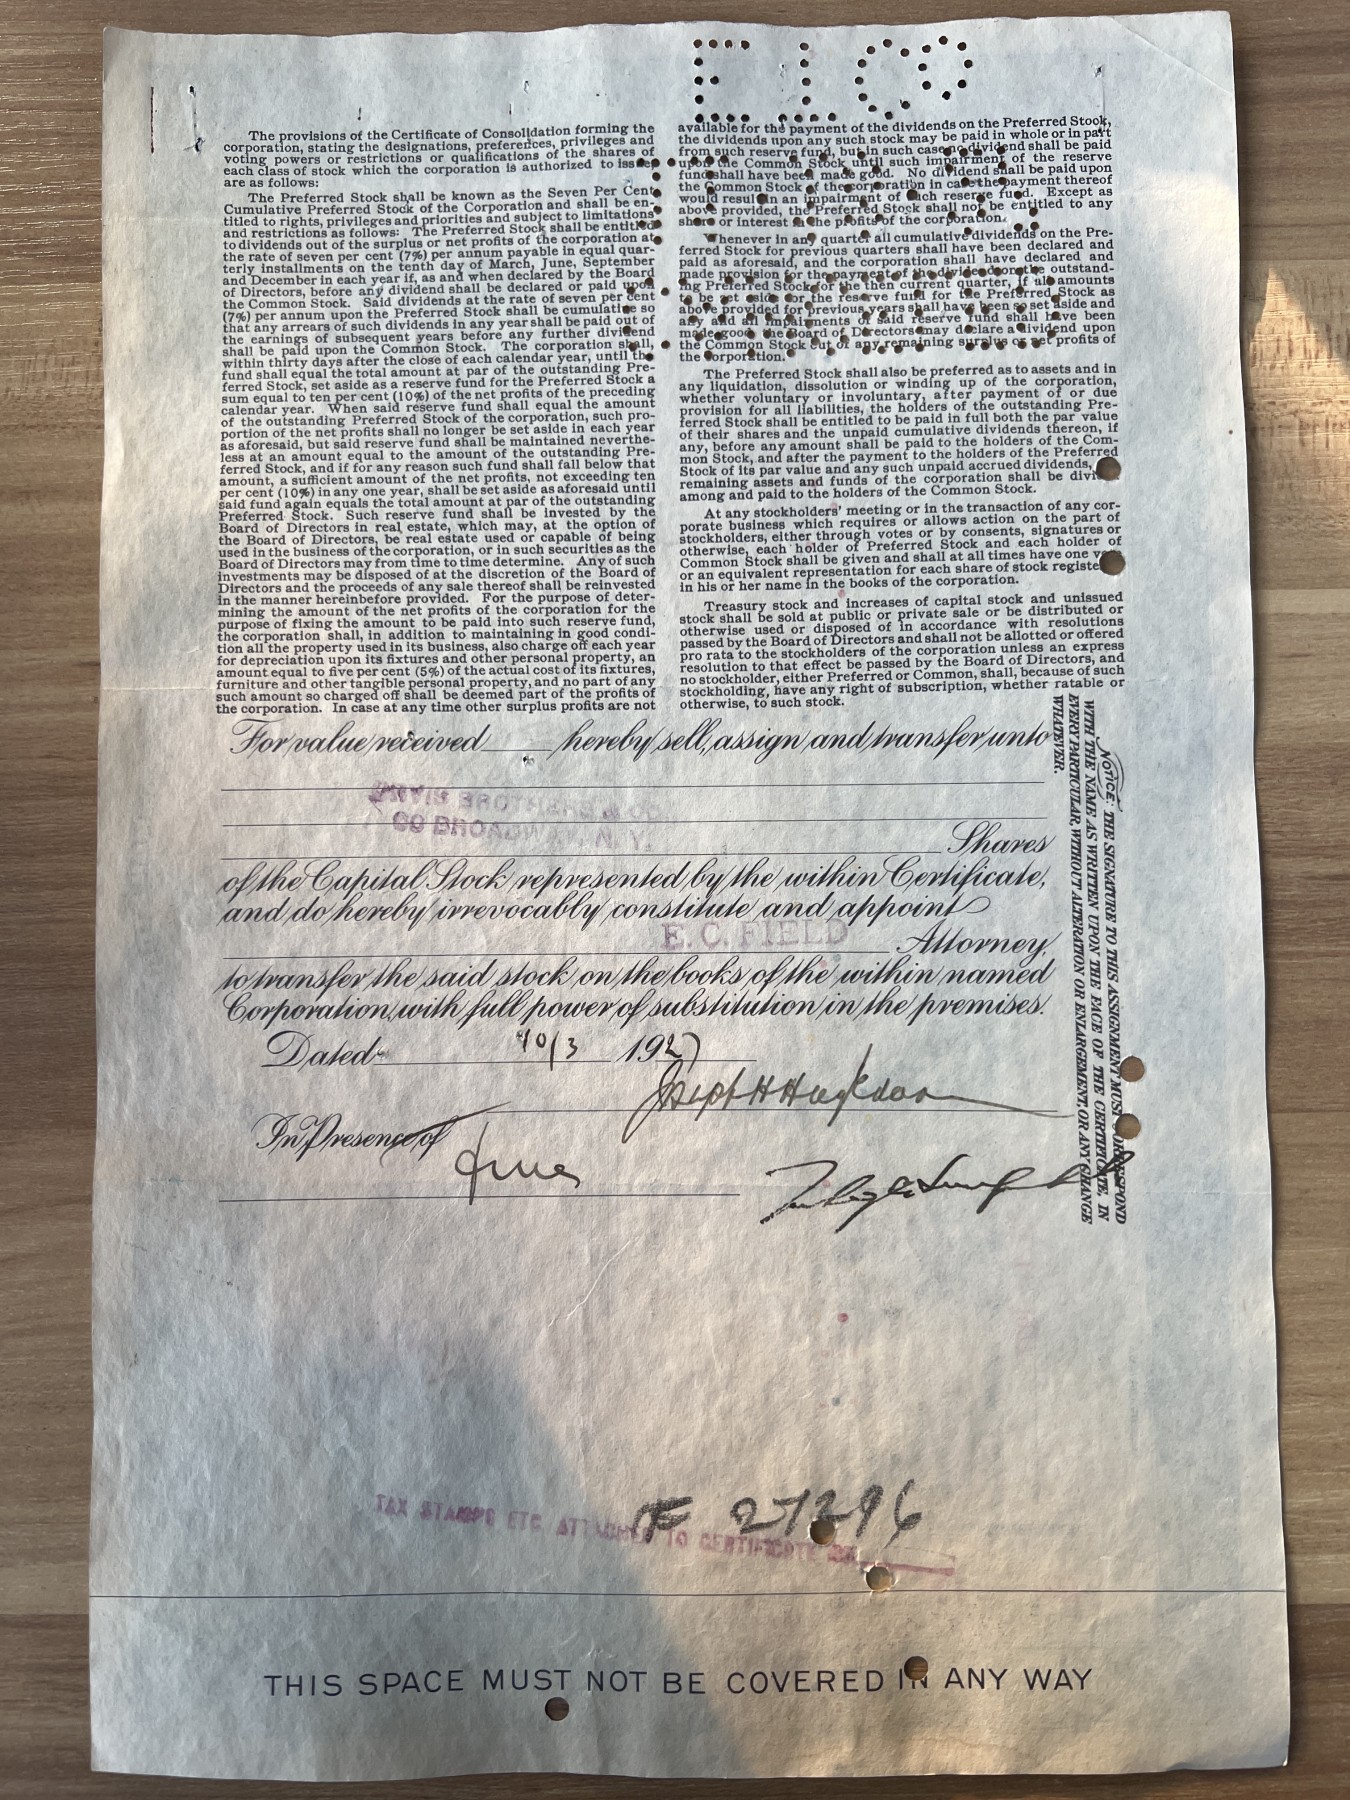 The provisions of the Certificate of Consolidation forming the
corporation, stating the designations, preferences, privileges and
voting powers or restrictions or qualifications of the shares of
each class of stock which the corporation is authorized to issue
are as follows:
The Preferred Stock shall be known as the Seven Per Cent
Cumulative Preferred Stock of the Corporation and shall be en-
titled to rights, privileges and priorities and subject to limitations
and restrictions as follows: The Preferred Stock shall be entitled
to dividends out of the surplus or net profits of the corporation at
the rate of seven per cent (7%) per annum payable in equal quar-
terly installments on the tenth day of March, June, September
and December in each year if, as and when declared by the Board
of Directors, before any dividend shall be declared or paid upon
the Common Stock. Said dividends at the rate of seven per cent
(7%) per annum upon the Preferred Stock shall be cumulative so
that any arrears of such dividends in any year shall be paid out of
the earnings of subsequent years before any further dividend
shall be paid upon the Common Stock. The corporation shall,
within thirty days after the close of each calendar year, until the
fund shall equal the total amount at par of the outstanding Pre-
ferred Stock, set aside as a reserve fund for the Preferred Stock a
sum equal to ten per cent (10%) of the net profits of the preceding
calendar year. When said reserve fund shall equal the amount
of the outstanding Preferred Stock of the corporation, such pro-
portion of the net profits shall no longer be set aside in each year
as aforesaid, but said reserve fund shall be maintained neverthe-
less at an amount equal to the amount of the outstanding Pre-
ferred Stock, and if for any reason such fund shall fall below that
amount, a sufficient amount of the net profits, not exceeding ten
per cent (10%) in any one year, shall be set aside as aforesaid until
said fund again equals the total amount at par of the outstanding
Preferred Stock. Such reserve fund shall be invested by the
Board of Directors in real estate, which may, at the option of
the Board of Directors, be real estate used or capable of being
used in the business of the corporation, or in such securities as the
Board of Directors may from time to time determine. Any of such
investments may be disposed of at the discretion of the Board of
Directors and the proceeds of any sale thereof shall be reinvested
in the manner hereinbefore provided. For the purpose of deter-
mining the amount of the net profits of the corporation for the
purpose of fixing the amount to be paid into such reserve fund,
the corporation shall, in addition to maintaining in good condi-
tion all the property used in its business, also charge off each year
for depreciation upon its fixtures and other personal property, an
amount equal to five per cent (5%) of the actual cost of its fixtures,
furniture and other tangible personal property, and no part of any
such amount so charged off shall be deemed part of the profits of
the corporation. In case at any time other surplus profits are not
available for the payment of the dividends on the Preferred Stock,
the dividends upon any such stock may be paid in whole or in part
from such reserve fund, but in such case no dividend shall be paid
upon the Common Stock until such impairment of the reserve
fund shall have been made good. No dividend shall be paid upon
the Common Stock of the corporation in case the payment thereof
would result in an impairment of such reserve fund. Except as
above provided, the Preferred Stock shall not be entitled to any
share or interest in the profits of the corporation.
Whenever in any quarter all cumulative dividends on the Pre-
ferred Stock for previous quarters shall have been declared and
paid as aforesaid, and the corporation shall have declared and
made provision for the payment of the dividend on the outstand-
ing Preferred Stock for the then current quarter, if all amounts
to be set aside for the reserve fund for the Preferred Stock as
above provided for previous years shall have been so set aside and
any and all impairments of said reserve fund shall have been
made good, the Board of Directors may declare a dividend upon
the Common Stock out of any remaining surplus or net profits of
the corporation.
The Preferred Stock shall also be preferred as to assets and in
any liquidation, dissolution or winding up of the corporation,
whether voluntary or involuntary, after payment of or due
provision for all liabilities, the holders of the outstanding Pre-
ferred Stock shall be entitled to be paid in full both the par value
of their shares and the unpaid cumulative dividends thereon, if
any, before any amount shall be paid to the holders of the Com-
mon Stock, and after the payment to the holders of the Preferred
Stock of its par value and any such unpaid accrued dividends,
remaining assets and funds of the corporation shall be divi
among and paid to the holders of the Common Stock.
At any stockholders' meeting or in the transaction of any cor-
porate business which requires or allows action on the part of
stockholders, either through votes or by consents, signatures or
otherwise, each holder of Preferred Stock and each holder of
Common Stock shall be given and shall at all times have one v
or an equivalent representation for each share of stock registe
in his or her name in the books of the corporation.
Treasury stock and increases of capital stock and unissued
stock shall be sold at public or private sale or be distributed or
otherwise used or disposed of in accordance with resolutions
passed by the Board of Directors and shall not be allotted or offered
pro rata to the stockholders of the corporation unless an express
resolution to that effect be passed by the Board of Directors, and
no stockholder, either Preferred or Common, shall, because of such
stockholding, have any right of subscription, whether ratable or
otherwise, to such stock.
For value received hereby sell, assign and transfer unto
60 BROADWAY, N. Y.
Shares
of the Capital Stock represented by the within Certificate,
and do hereby irrevocably constitute and appoint
E. C. FIELD Attorney,
to transfer the said stock on the books of the within named
Corporation, with full power of substitution in the premises.
Dated 10/3 1927
Joseph H
In Presence of
NOTICE: THE SIGNATURE TO THIS ASSIGNMENT MUST CORRESPOND
WITH THE NAME AS WRITTEN UPON THE FACE OF THE CERTIFICATE, IN
EVERY PARTICULAR, WITHOUT ALTERATION OR ENLARGEMENT, OR ANY CHANGE
WHATEVER.
F 27296
TAX STAMPS ETC ATTACHED TO CERTIFICATE
THIS SPACE MUST NOT BE COVERED IN ANY WAY